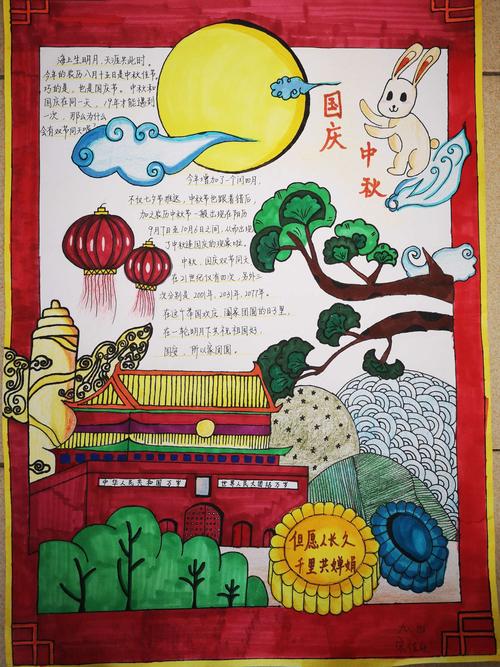 海上生明月，天涯共此时。
今年的农历八月十五日是中秋佳节，
巧的是，也是国庆节。中秋和
国庆在同一天，19年才能遇到
一次，那么为什么
会有双节同天呢？
国庆
中秋
今年增加了一个闰四月，
不仅七夕节难迟，中秋节也跟着错后，
加之农历中秋节一般出现在阳历
9月7日至10月6日之间，从而出现
了中秋逢国庆的现象啦。
中秋、国庆双节同天
在21世纪仅有四次，另外三
次分别是2001年，2031年，2077年。
在这个举国欢庆，阖家团圆的日子里，
在一轮明月下共祝祖国好，
国安，所以家团圆。
中华人民共和国万岁
世界人民大团结万岁
但愿人长久
千里共婵娟